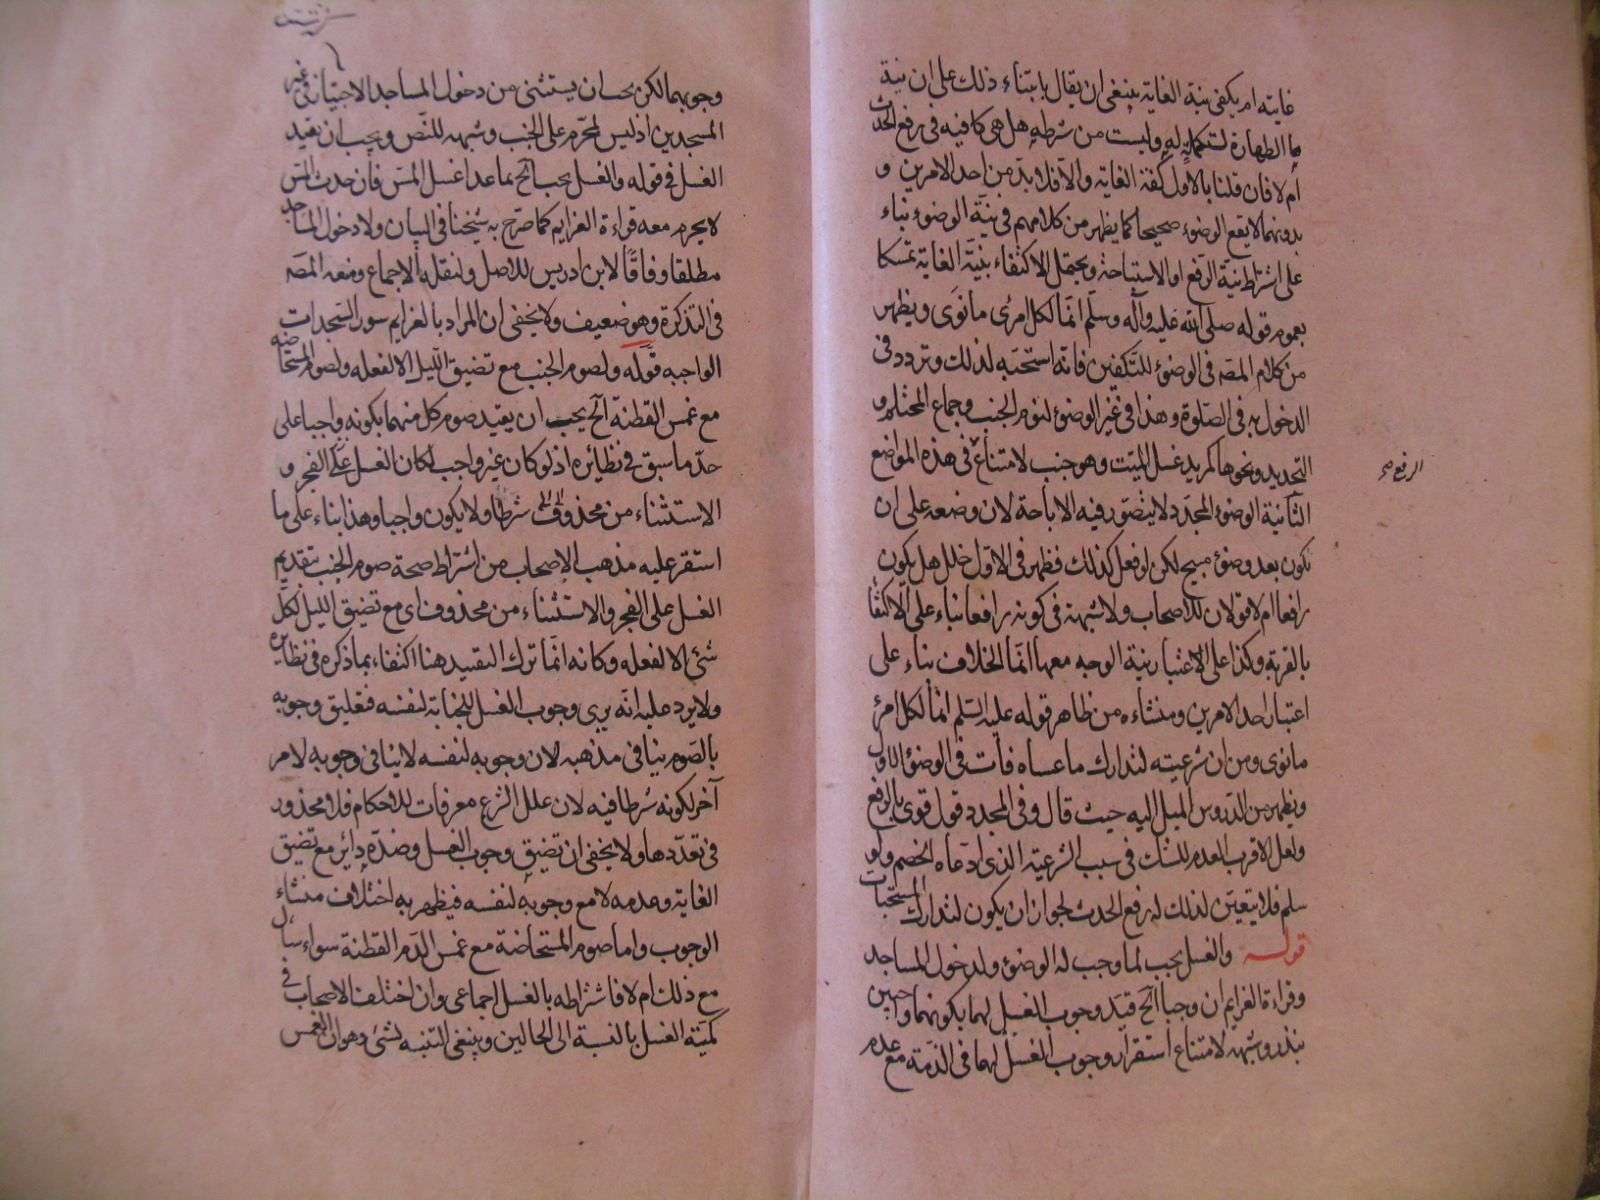 غايته ام يكفى بنية الغاية ينبغى ان يقال بابتناء ذلك على ان نية
ما الطهارة لتكملة له وليست من شرطه هل هى كافيه فى رفع الحدث
ام لا فان قلنا بالاول كفة الغاية والا فلا بد من احد الامرين و
بدونهما لا يقع الوضوء صحيحا كما يظهر من كلامهم فى نية الوضوء بناء
على اشتراط نية الرفع او الاستباحة ويحتمل الاكتفاء بنية الغاية تمسكا
بعموم قوله صلى الله عليه وآله وسلم انما لكل امرئ ما نوى ويظهر
من كلام المصه فى الوضوء للتكفين فانه استحبه لذلك وتردد فى
الدخول به فى الصلوة وهذا فى غير الوضوء لنوم الجنب وجماع المحتلم و
التجديد ونحوها كمريد غسل الميت وهو جنب لامتناع فى هذه المواضع
الرفع صح
الثانية الوضوء المجدد لا يتصور فيه الاباحة لان وضعه على ان
يكون بعد وضوء مبيح لكن لو فعل كذلك فظهر فى الاول خلل هل يكون
رافعا ام لا قولان للاصحاب ولا شبهة فى كونه رافعا بناء على الاكتفا
بالقربة وكذا على الاعتبار نية الوجه معها انما الخلاف بناء على
اعتبار احد الامرين ومنشاءه من ظاهر قوله عليه السلم انما لكل امرئ
ما نوى ومن ان شرعيته لتدارك ما عساه فات فى الوضوء الاول
ويظهر من الدروس الميل اليه حيث قال وفى المجدد قول قوى بالرفع
ولعل الاقرب العدم للشك فى سبب الشرعية الذى ادعاه الخصم ولو
سلم فلا يتعين لذلك له رفع الحدث لجواز ان يكون لتدارك المستحبات
قوله والغسل يجب لما وجب له الوضوء ولدخول المساجد
وقراءة العزايم ان وجبا آلخ قيد وجوب الغسل لهما بكونهما واجبين
بنذر وشبهه لامتناع استقرار وجوب الغسل لهما فى الذمة مع عدم
وجوبهما لكن يجب ان يستثنى من دخول المساجد الاجتياز فى غير
المسجدين اذ ليس لمحرم على الجنب وشبهه للنص ويجب ان يقيد
الغسل فى قوله والغسل يجب آلخ بما عدا غسل المس فان حدث المس
لا يحرم معه قراءة العزايم كما صرح به شيخنا فى البيان ولا دخول المساجد
مطلقا وفاقا لابن ادريس للاصل ولنقله الاجماع ومنعه المصه
فى التذكرة وهو ضعيف ولا يخفى ان المراد بالعزايم سور السجدات
الواجبه قوله ولصوم الجنب مع تضيق الليل الا لفعله ولصوم المستحاضه
مع غمس القطنة آلخ يجب ان يقيد صوم كل منهما بكونه واجبا على
حد ما سبق فى نظائره اذ لو كان غير واجب لكان الغسل على الفجر و
الاستثناء من محذوف شرطا ولا يكون واجبا وهذا بناء على ما
استقر عليه مذهب الاصحاب من اشتراط صحة صوم الجنب بتقديم
الغسل على الفجر والاستثناء من محذوف اى مع تضيق الليل لكل
شئ الا لفعله وكانه انما ترك التقييد هنا اكتفاء بما ذكره فى نظايره
ولا يرد عليه انه يرى وجوب الغسل للجنابة لنفسه فتعليق وجوبه
بالصوم ينافى مذهبه لان وجوبه لنفسه لا ينافى وجوبه لامر
آخر لكونه شرطا فيه لان علل الشرع معرفات للاحكام فلا محذور
فى تعددها ولا يخفى ان تضيق وجوب الغسل وضده دائر مع تضيق
الغاية وعدمه لا مع وجوبه لنفسه فيظهر به اختلاف منشاء
الوجوب واما صوم المستحاضة مع غمس الدم القطنة سواء سال
مع ذلك ام لا فاشتراطه بالغسل اجماعى وان اختلف الاصحاب فى
كمية الغسل بالنسبة الى الحالين وينبغى التنبه لشئ وهو ان الغمس